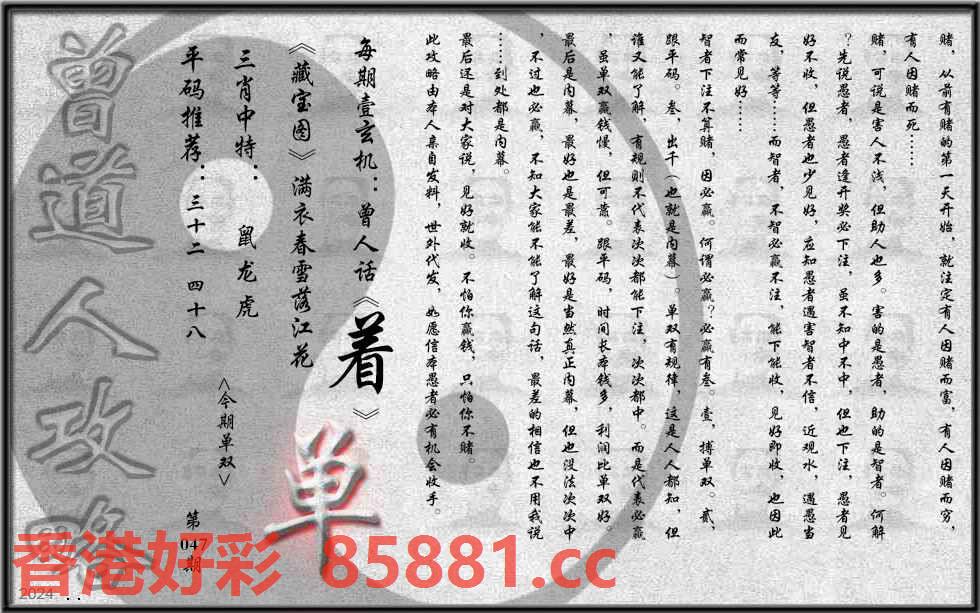 赌，从前有赌的第一天开始，就注定有人因赌而富，有人因赌而穷，
有人因赌而死……
赌，可说是害人不浅，但助人也多。害的是愚者，助的是智者。何解
？先说愚者，愚者逢开奖必下注，虽不知中不中，但也下注，愚者见
好不收，但愚者也少见好，应知愚者遇害智者不信，近观水，遇愚当
友，等等……而智者，不智必赢不注，能下能收，见好即收，也因此
而常见好……
智者下注不算赌，因必赢。何谓必赢？必赢有叁。壹，搏单双。贰，
跟平码。叁，出千（也就是内幕）。单双有规律，这是人人都知，但
谁又能了解，有规则不代表次次都能下注，次次都中。而是代表必赢
，虽单双赢钱慢，但可靠。跟平码，时间长本钱多，利润比单双好。
最后是内幕，最好也是最差，最好是当然真正内幕，但也没法次次中
，不过也必赢，不知大家能不能了解这句话，最差的相信也不用我说
……到处都是内幕。
最后还是对大家说，见好就收。不怕你赢钱，只怕你不赌。
此攻略由本人亲自发料，世外代发，如愿信本愚者必有机会收手。
每期壹玄机：曾人话《着》
《藏宝图》满衣春雪落江花
三肖中特：鼠龙虎
平码推荐：三十二 四十八
<今期单双>
单
第
047
期
曾道人攻略
香港好彩 85881.cc
2024